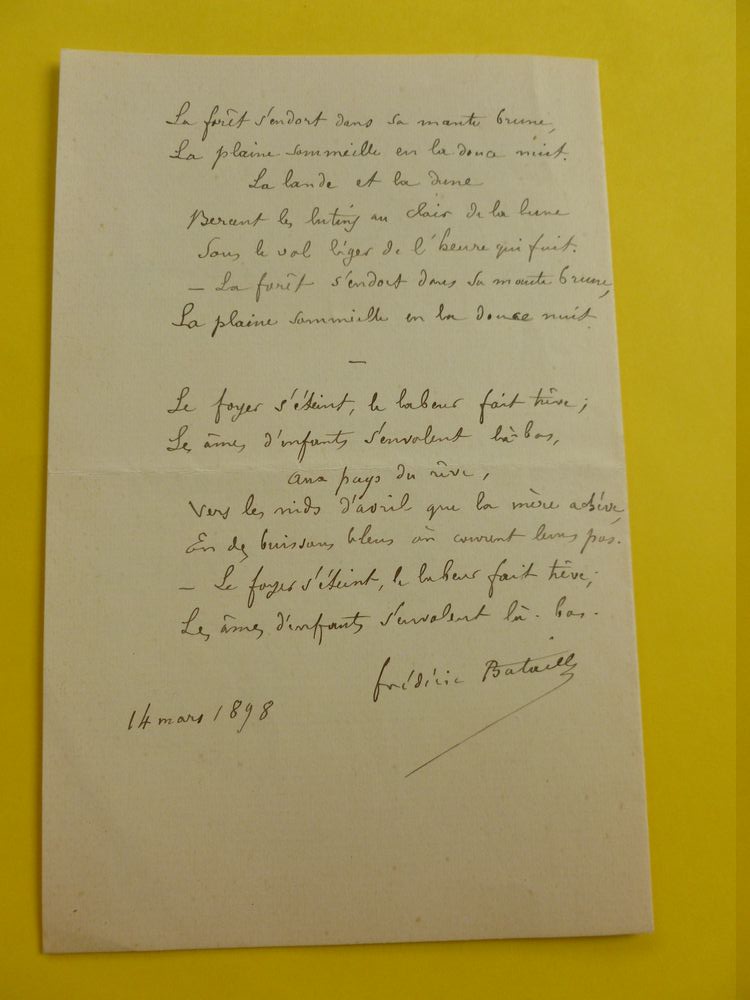 La forêt s'endort dans sa mante brune,
La plaine sommeille en la douce nuit.
La lande et la dune
Bercent les lutins au clair de la lune
Sous le vol léger de l'heure qui fuit.
— La forêt s'endort dans sa mante brune,
La plaine sommeille en la douce nuit
—
Le foyer s'éteint, le labeur fait trêve;
Les âmes d'enfants s'envolent là-bas,
Aux pays du rêve,
Vers les nids d'avril que la mère achève
En des buissons bleus où courent leurs pas.
— Le foyer s'éteint, le labeur fait trêve;
Les âmes d'enfants s'envolent là-bas.
Frédéric Bataille
14 mars 1898